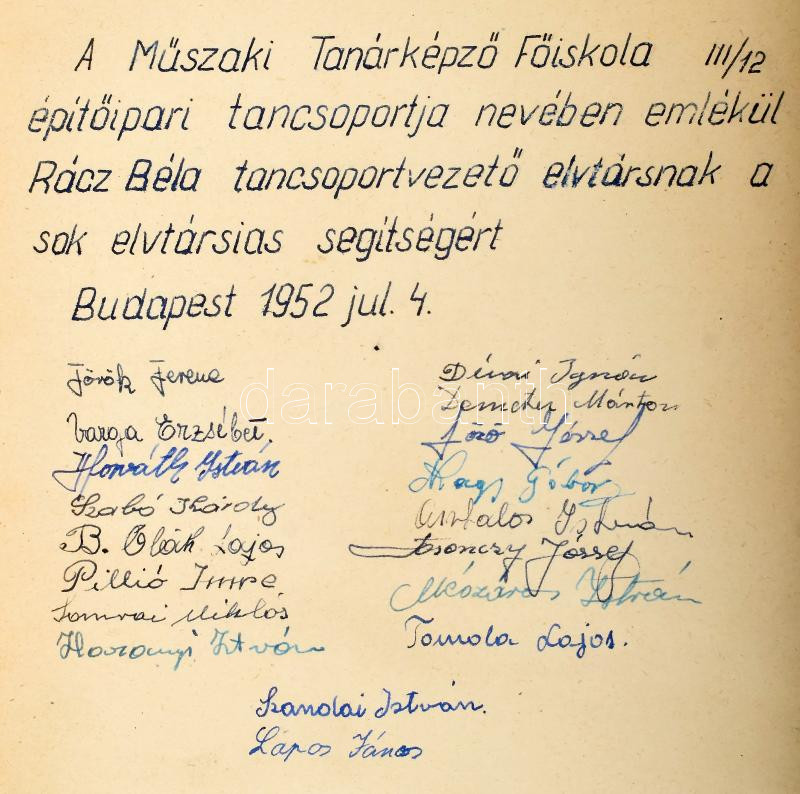 A Műszaki Tanárképző Főiskola III/12
építőipari tancsoportja nevében emlékül
Rácz Béla tancsoportvezető elvtársnak a
sok elvtársias segítségért
Budapest 1952 jul. 4.
Török Ferenc
Varga Erzsébet.
Horváth István
Szabó Károly
B. Oláh Lajos
Pillió Imre
Miklós
Haranyi István
Dévai Ignác
Demeter Márton
József
Nagy Gábor
Antalos István
József
Mészáros István
Tomola Lajos.
Szandai István.
Lapos János
darabanth